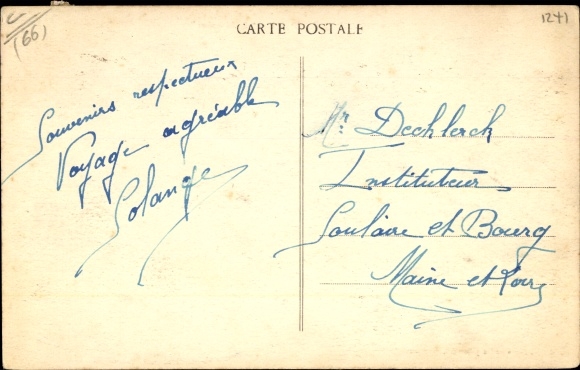 (66)
CARTE POSTALE
1241
Souvenirs respectueux
Voyage agréable
Solange
Mr. Dechlerck
Instituteur
Soulaire et Bourg
Maine et Loire